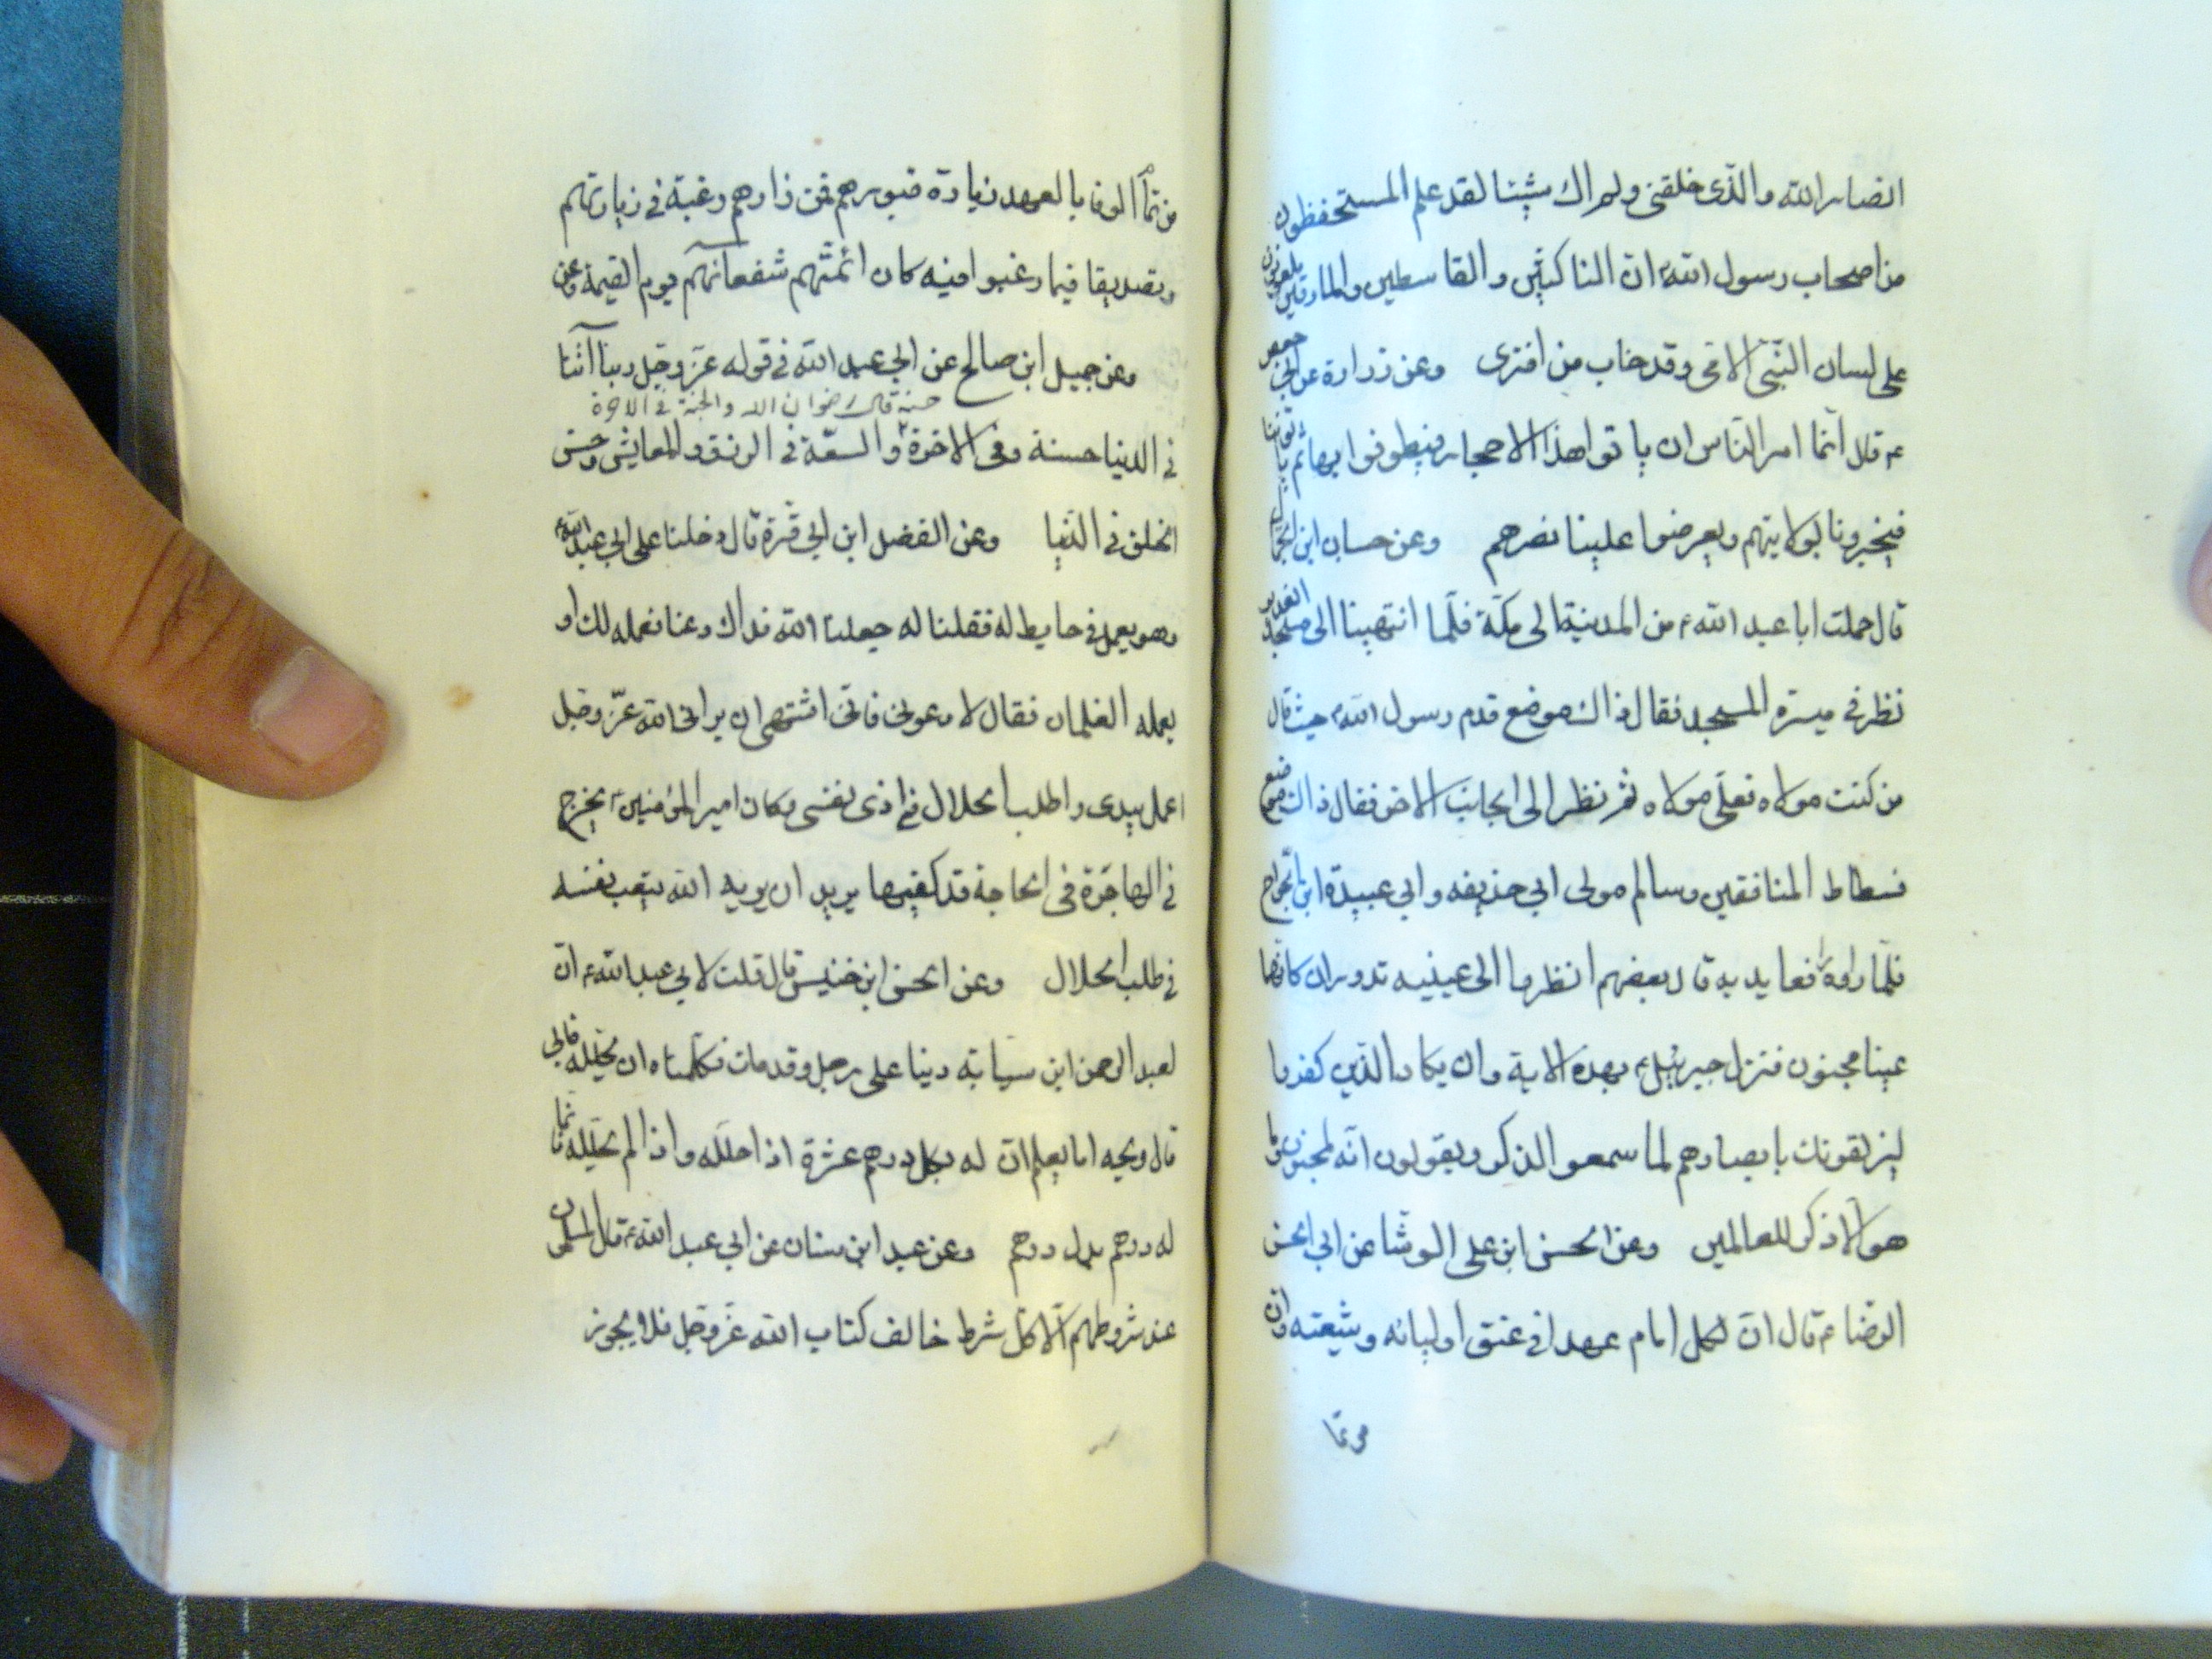 انصار الله والذي خلقني ولم اك شيئا لقد علم المستحفظون
من اصحاب رسول الله ان الناكثين والقاسطين والمارقين ملعونون
على لسان النبي الامي وقد خاب من افترى وعن زرارة عن ابي جعفر
ع قال انما امر الناس ان ياتوا هذا الاحجار فيطوفوا بها ثم ياتوننا
فيخبرونا بولايتهم ويعرضوا علينا نصرهم وعن حسان ابن الجمال
قال حملت ابا عبد الله ع من المدينة الى مكة فلما انتهينا الى مسجد الغدير
نظر في ميسرة المسجد فقال ذاك موضع قدم رسول الله حيث قال
من كنت مولاه فعلي مولاه ثم نظر الى الجانب الاخر فقال ذاك موضع
فسطاط المنافقين وسالم مولى ابي حذيفه وابي عبيدة ابن الجراح
فلما راوه رافعا يديه قال بعضهم انظروا الى عينيه تدوران كانها
عينا مجنون فنزل جبرئيل ع بهذه الاية وان يكاد الذين كفروا
ليزلقونك بابصارهم لما سمعوا الذكر ويقولون انه لمجنون وما
هو الا ذكر للعالمين وعن الحسن ابن علي الوشا عن ابي الحسن
الرضا ع قال ان لكل امام عهدا في عنق اوليائه وشيعته وان
من تمام الوفا بالعهد زيادة قبورهم فمن زارهم رغبة في زيارتهم
وتصديقا فيما رغبوا فيه كان ائمتهم شفعائهم يوم القيمة وعن
وعن جميل ابن صالح عن ابي عبد الله في قوله عز وجل ربنا اتنا
حسنة قال رضوان الله والجنة في الاخرة
في الدنيا حسنة وفي الاخرة والسعة في الرزق والمعايش وحسن
الخلق في الدنيا وعن الفضل ابن ابي قرة قال دخلنا على ابي عبد الله ع
وهو يعمل في حايط له فقلنا له جعلنا الله فداك دعنا نعمله لك او
يعمله الغلمان فقال لا دعوني فاني اشتهي ان يراني الله عز وجل
اعمل بيدي واطلب الحلال في اذى نفسي وكان امير المؤمنين ع يخرج
في الهاجرة في الحاجة قد كفيها يريد ان يريه الله يتعب نفسه
في طلب الحلال وعن الحسن ابن خنيس قال قلت لابي عبد الله ع ان
لعبد الرحمن ابن سيابة دينا على رجل وقد مات فكلمناه ان يحلله فابى
قال ويحه اما يعلم ان له بكل درهم عشرة اذا حلله واذا لم يحلله فانما
له درهم بدل درهم وعن عبد ابن سنان عن ابي عبد الله ع قال المسلمون
عند شروطهم الا كل شرط خالف كتاب الله عز وجل فلا يجوز